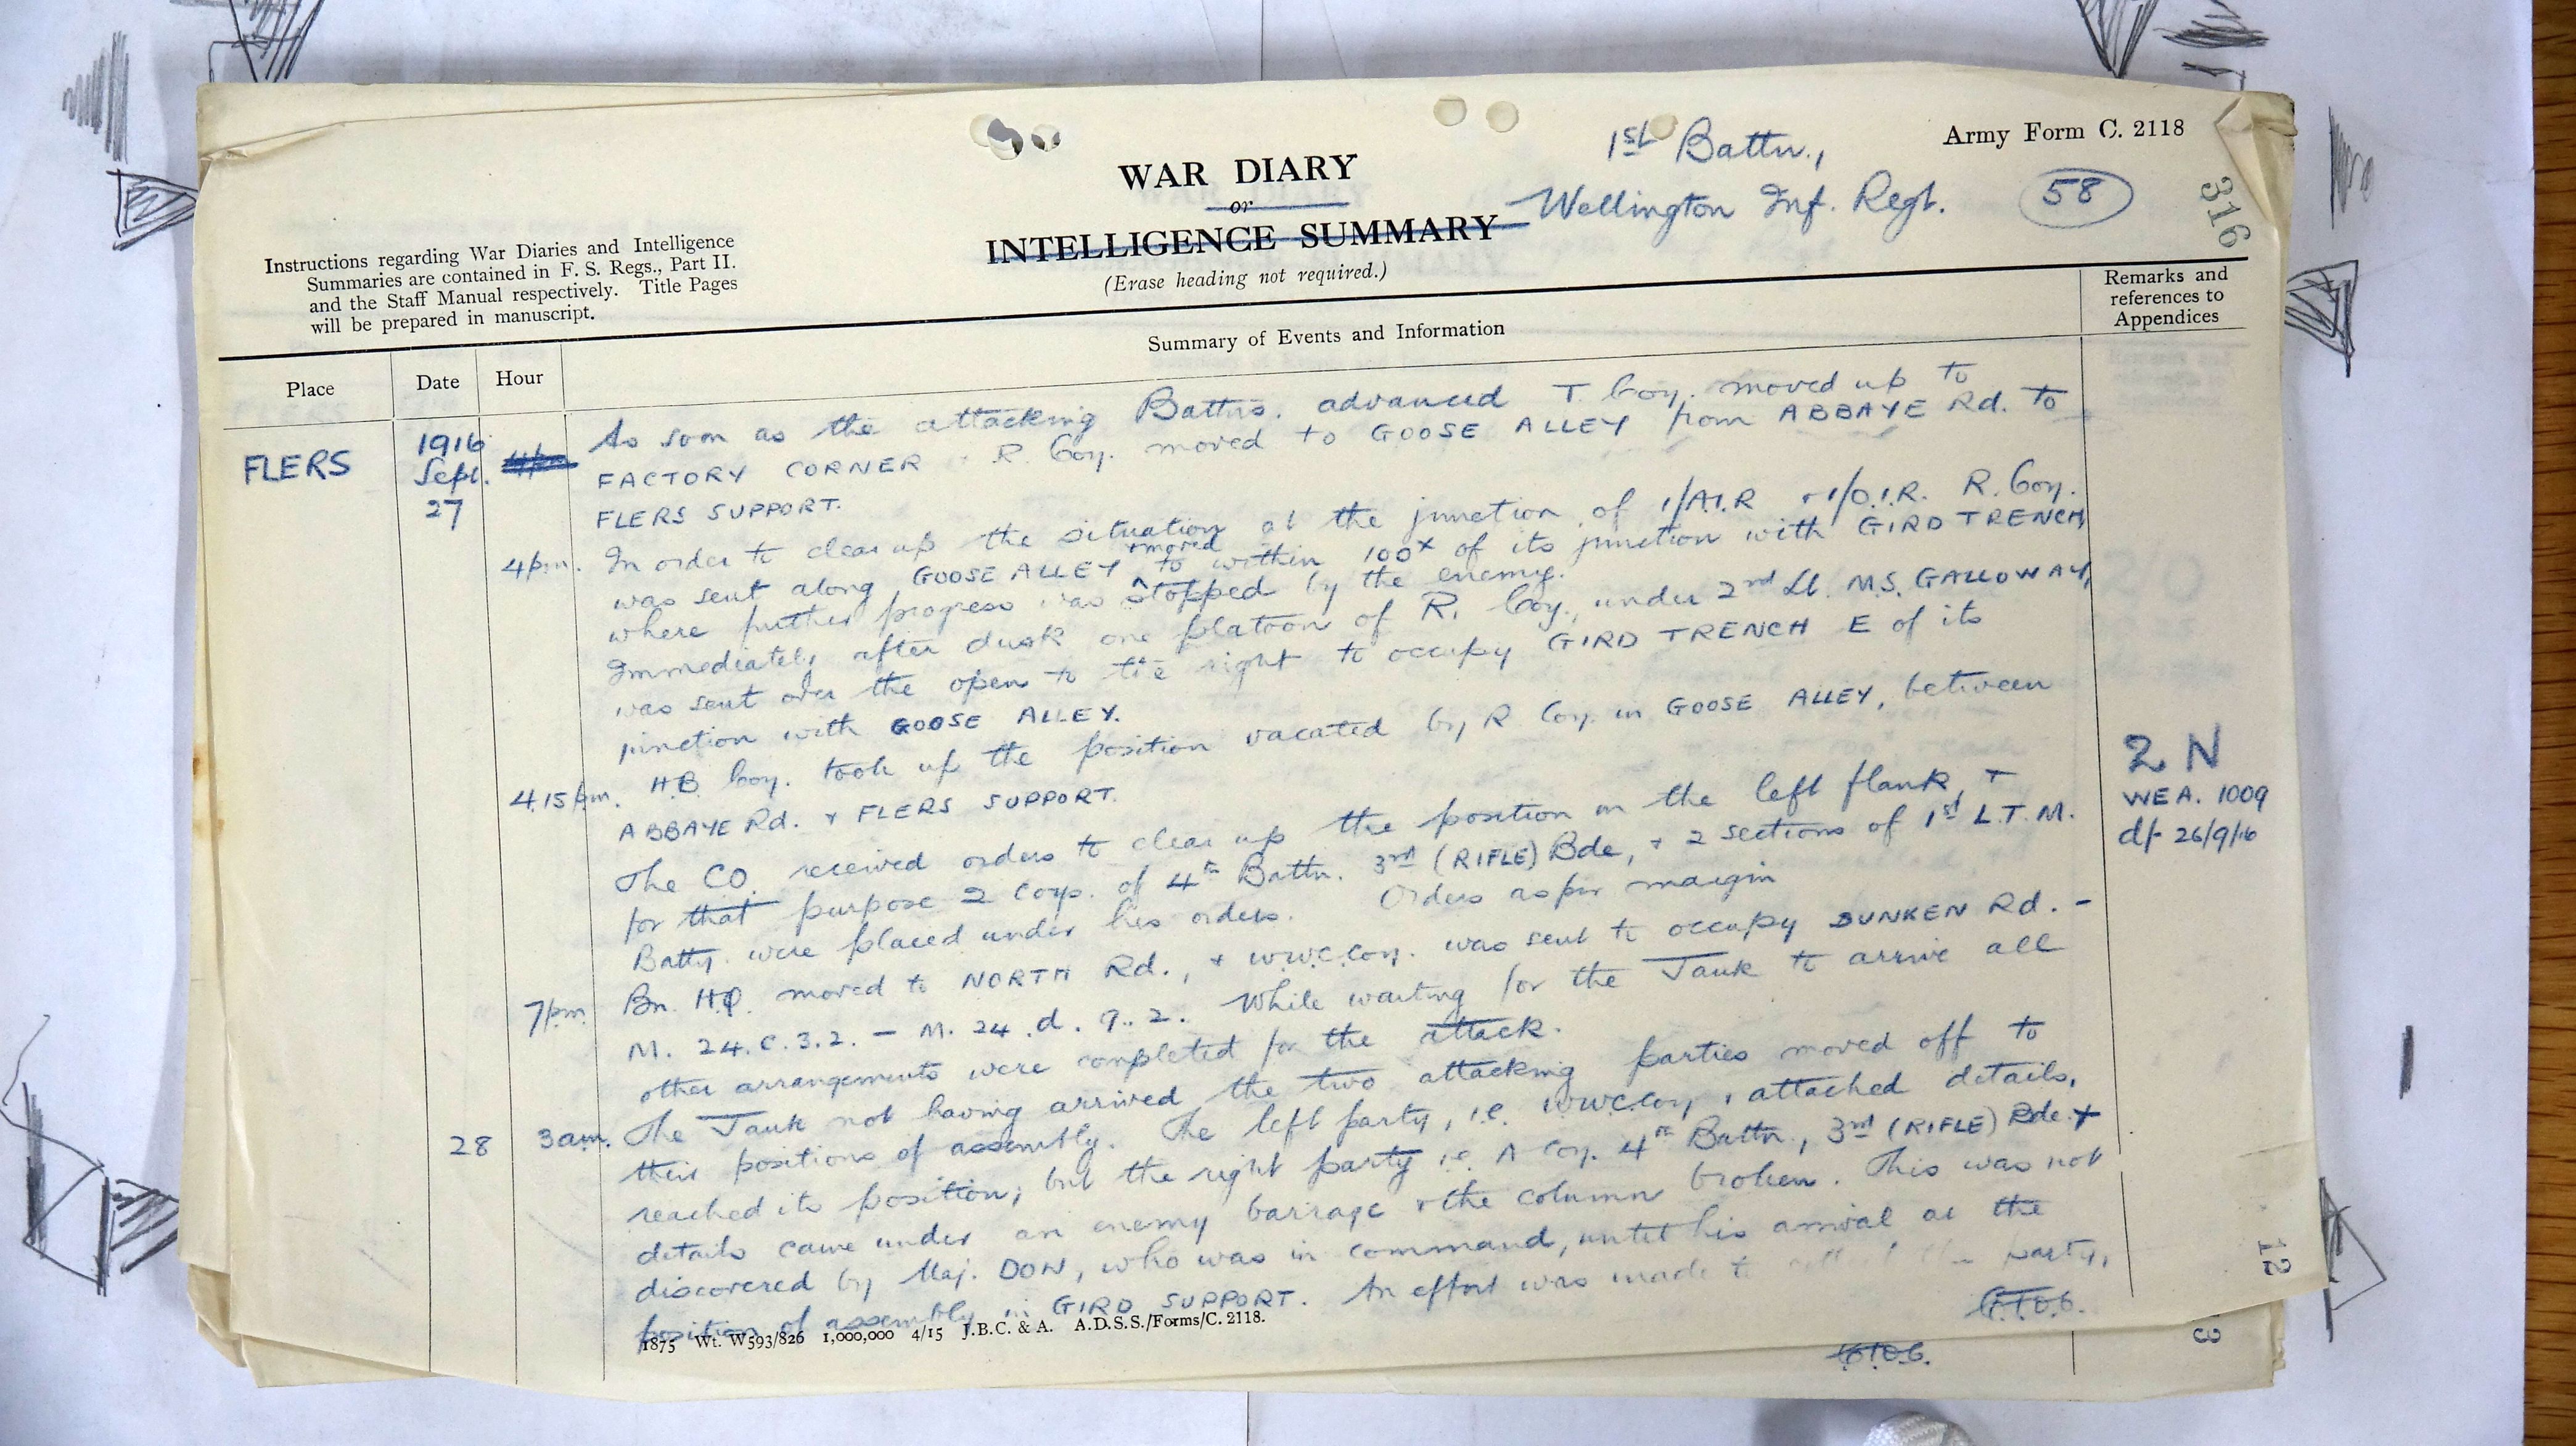 1st Battn.,
Army Form C. 2118
WAR DIARY
or
INTELLIGENCE SUMMARY
(Erase heading not required.)
Wellington Inf. Regt.
58
316
Instructions regarding War Diaries and Intelligence
Summaries are contained in F. S. Regs., Part II.
and the Staff Manual respectively. Title Pages
will be prepared in manuscript.
Remarks and
references to
Appendices
Summary of Events and Information
Place
Date
Hour
FLERS
1916
Sept.
27
As soon as the attacking Battns. advanced T. Coy. moved up to
FACTORY CORNER + R. Coy. moved to GOOSE ALLEY from ABBAYE Rd. to
FLERS SUPPORT.
4pm. In order to clear up the situation at the junction of 1/A.I.R + 1/O.I.R. R. Coy.
was sent along GOOSE ALLEY + moved to within 100x of its junction with GIRD TRENCH
where further progress was stopped by the enemy.
Immediately after dusk one platoon of R. Coy., under 2nd Lt. M.S. GALLOWAY,
was sent over the open to the right to occupy GIRD TRENCH E of its
junction with GOOSE ALLEY.
4.15pm. H.B. Coy. took up the position vacated by R Coy. in GOOSE ALLEY, between
ABBAYE Rd. + FLERS SUPPORT.
The CO. received orders to clear up the position on the left flank, +
for that purpose 2 Coys. of 4th Battn. 3rd (RIFLE) Bde, + 2 sections of 1st L.T.M.
Batty. were placed under his orders. Orders as per margin
2 N
WEA. 1009
d/- 26/9/16
7pm. Bn. HQ. moved to NORTH Rd., + W.W.C. Coy. was sent to occupy SUNKEN Rd. -
M. 24. c. 3. 2. - M. 24. d. 9. 2. While waiting for the Tank to arrive all
other arrangements were completed for the attack.
28 3am. The Tank not having arrived the two attacking parties moved off to
their positions of assembly. The left party, i.e. W.W.C. Coy + attached details,
reached its position; but the right party i.e. A Coy. 4th Battn., 3rd (RIFLE) Bde. +
details came under an enemy barrage + the column broken. This was not
discovered by Maj. DON, who was in command, until his arrival at the
position of assembly in GIRD SUPPORT. An effort was made to party,
1875 Wt. W593/826 1,000,000 4/15 J.B.C. & A. A.D.S.S./Forms/C. 2118.
12
3